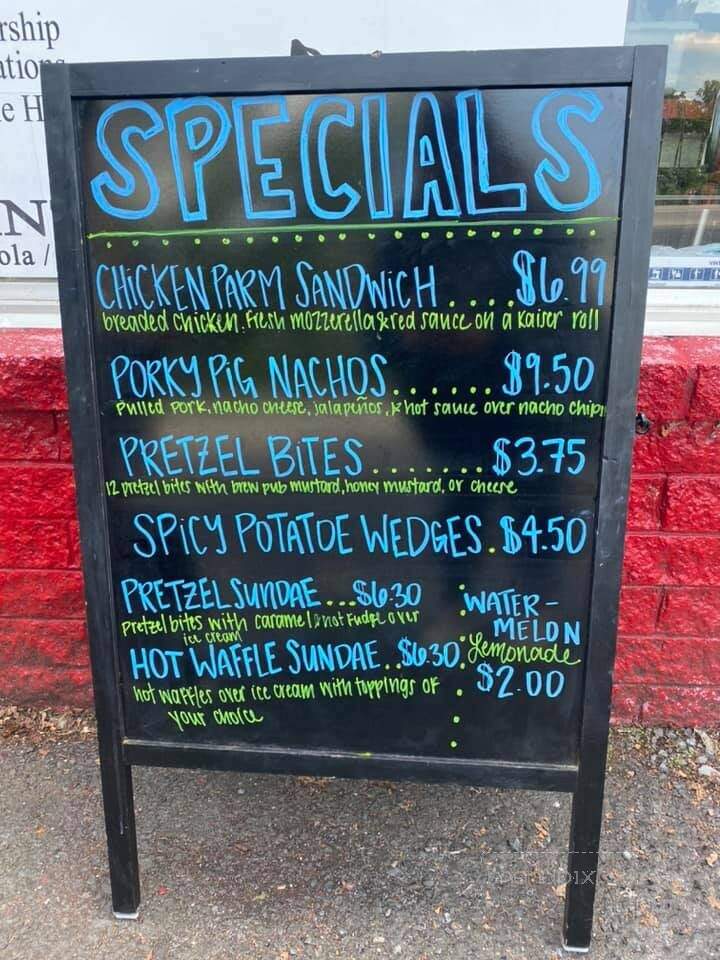 rship
ation
e H
N
ola /
SPECIALS
CHiCKEN PARM SANDWiCH....$6.99
breaded chicken, fresh mozzerella & red sauce on a kaiser roll
PORKY PiG NACHOS......$9.50
Pulled pork, nacho cheese, jalapeños, & hot sauce over nacho chips
PRETZEL BiTES.......$3.75
12 pretzel bites with brew pub mustard, honey mustard, or cheese
SPiCY POTATOE WEDGES.$4.50
PRETZEL SUNDAE...$6.30
pretzel bites with caramel & hot fudge over
ice cream
HOT WAFFLE SUNDAE..$6.30
hot waffles over ice cream with toppings of
your choice
WATER-
MELON
Lemonade
$2.00